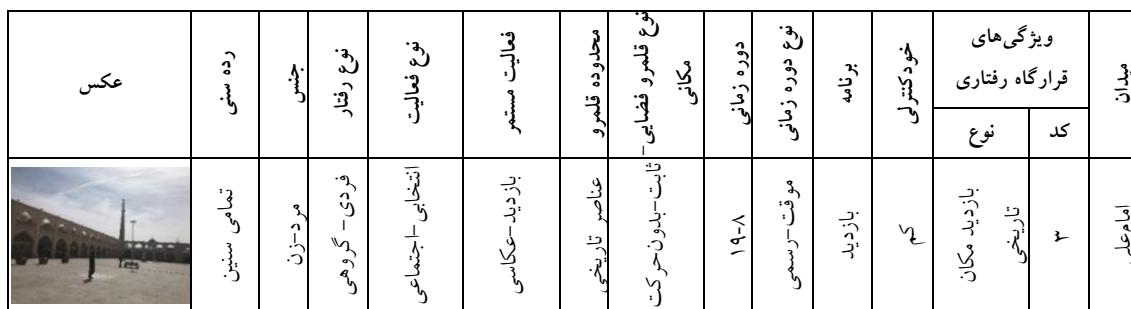 میدان
ویژگی‌های
قرارگاه رفتاری
کد
نوع
خودکنترلی
برنامه
نوع دوره زمانی
دوره زمانی
نوع قلمرو فضایی-
مکانی
محدوده قلمرو
فعالیت مستمر
نوع فعالیت
نوع رفتار
جنس
رده سنی
عکس
امام‌علی
۳
بازدید مکان
تاریخی
کم
بازدید
موقت-رسمی
۸-۱۹
ثابت-بدون‌حرکت
عناصر تاریخی
بازدید-عکاسی
انتخابی-اجتماعی
فردی- گروهی
مرد-زن
تمامی سنین